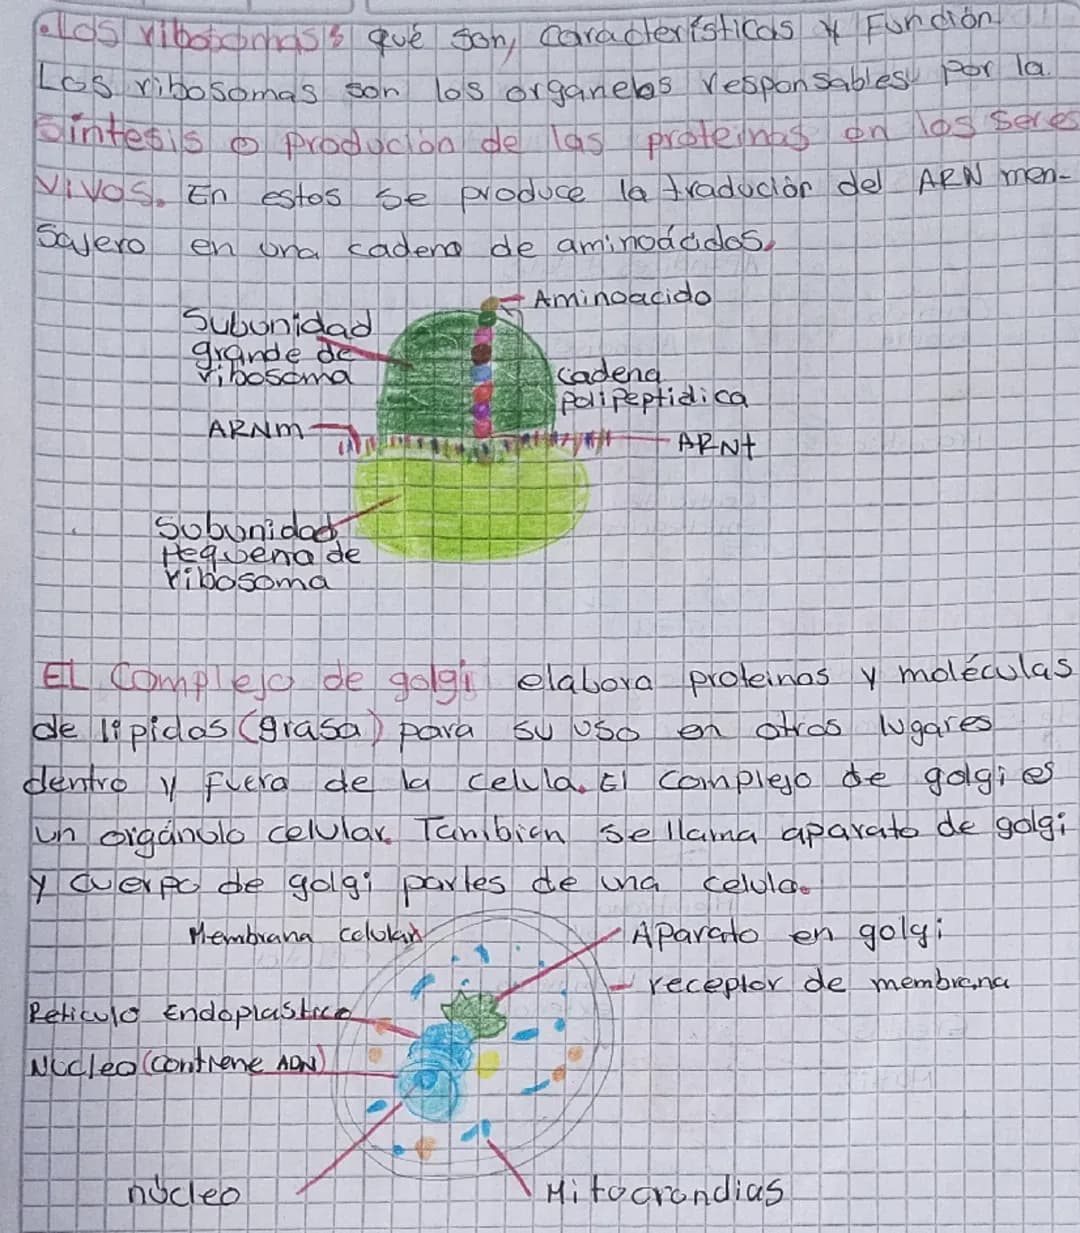 •Los ribosomas: qué son, características y Función
Los ribosomas son los organelos responsables por la
síntesis o produción de las proteinas en los seres
vivos. En estos se produce la tradución del ARN men-
sajero en una cadena de aminoácidos.
Aminoacido
Subunidad
grande de
ribosoma
cadena
polipeptidica
ARNm
ARNt
Subunidad
Pequena de
ribosoma
El Complejo de golgi elabora proteinas y moléculas
de lipidos (grasa) para su uso en otros lugares
dentro y fuera de la celula. El complejo de golgi es
un orgánulo celular. Tambien se llama aparato de golgi
y cuerpo de golgi partes de una celula.
Membrana celular
Aparato en golgi
receptor de membrana
Reticulo Endoplastico
Núcleo (contiene ADN)
núcleo
Mitocrondias